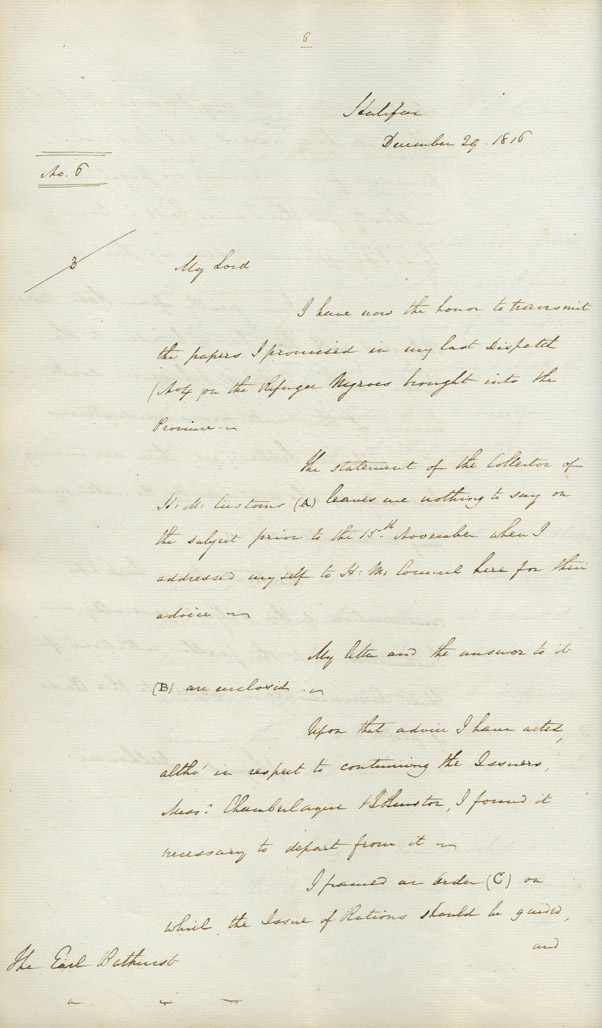 6
Halifax
December 29. 1816
No. 6
3
My Lord
I have now the honor to transmit
the papers I promised in my last Dispatch
(No 4) on the Refugee Negroes brought into the
Province.
The statement of the Collector of
H. M. Customs (A) leaves me nothing to say on
the subject prior to the 15th November when I
addressed myself to H. M. Council here for their
advice
My letter and the answer to it
(B) are inclosed.
Upon that advice I have acted,
altho' in respect to continuing the Issuers,
Mess: Chamberlayne & Johnston, I found it
necessary to depart from it
I framed an order (C) on
which the Issue of Rations should be guided,
and
The Earl Bathurst